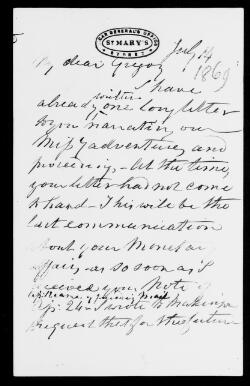 VICAR GENERAL'S OFFICE
ST MARY'S
SYDNEY
July 14
1869
My dear Gregory
I have
already written one long letter
to you narrating our
Misf adventures and
proceedings - At the time
your letter had not come
to hand - This will be the
last communication
about your Monetary
affairs - as so soon as I
received your Note
Apr. 24 - I wrote to
request that for the future